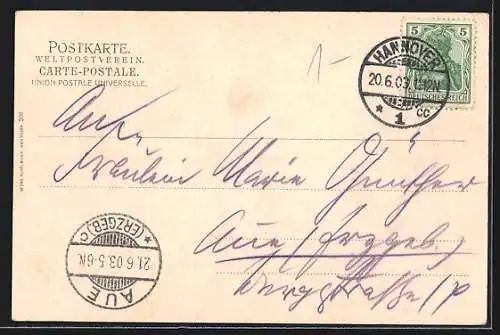 POSTKARTE.
WELTPOSTVEREIN.
CARTE-POSTALE.
UNION POSTALE UNIVERSELLE.
1-
5 5
DEUTSCHES REICH
HANNOVER
20.6.03.
* 1 cc
Fräulein Marie Günther
Aue (Erzgeb.)
* (ERZGEB.) c
21.6.03.5-6N.
AUE